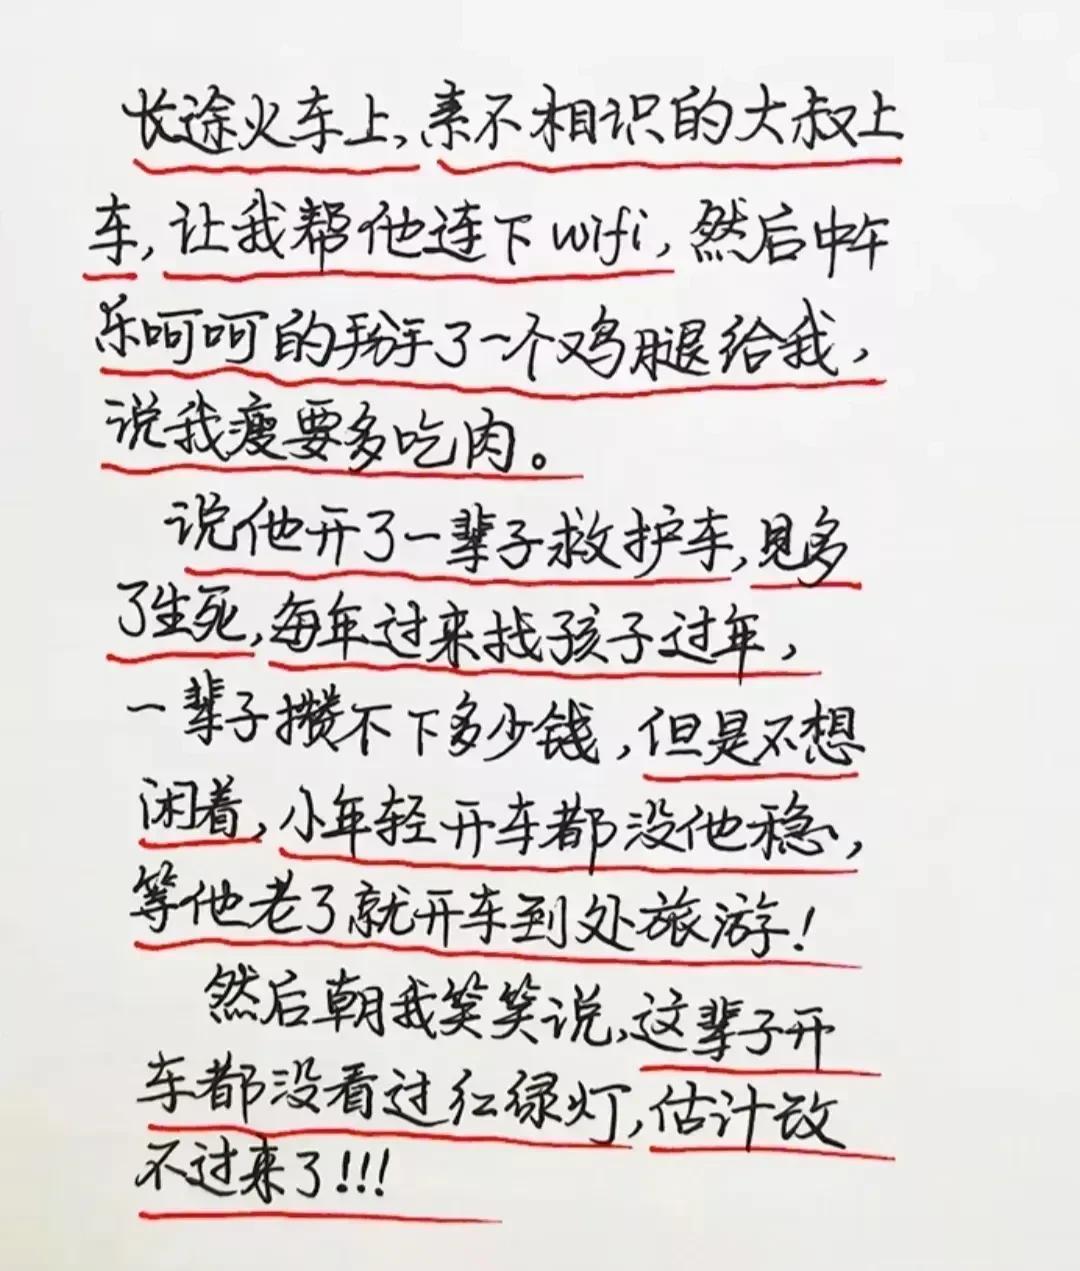 长途火车上,素不相识的大叔上
车,让我帮他连下wifi,然后中午
乐呵呵的掰了一个鸡腿给我,
说我瘦要多吃肉。
说他开了一辈子救护车,见多
了生死,每年过来找孩子过年,
一辈子攒不下多少钱,但是不想
闲着,小年轻开车都没他稳,
等他老了就开车到处旅游!
然后朝我笑笑说,这辈子开
车都没看过红绿灯,估计改
不过来了!!!